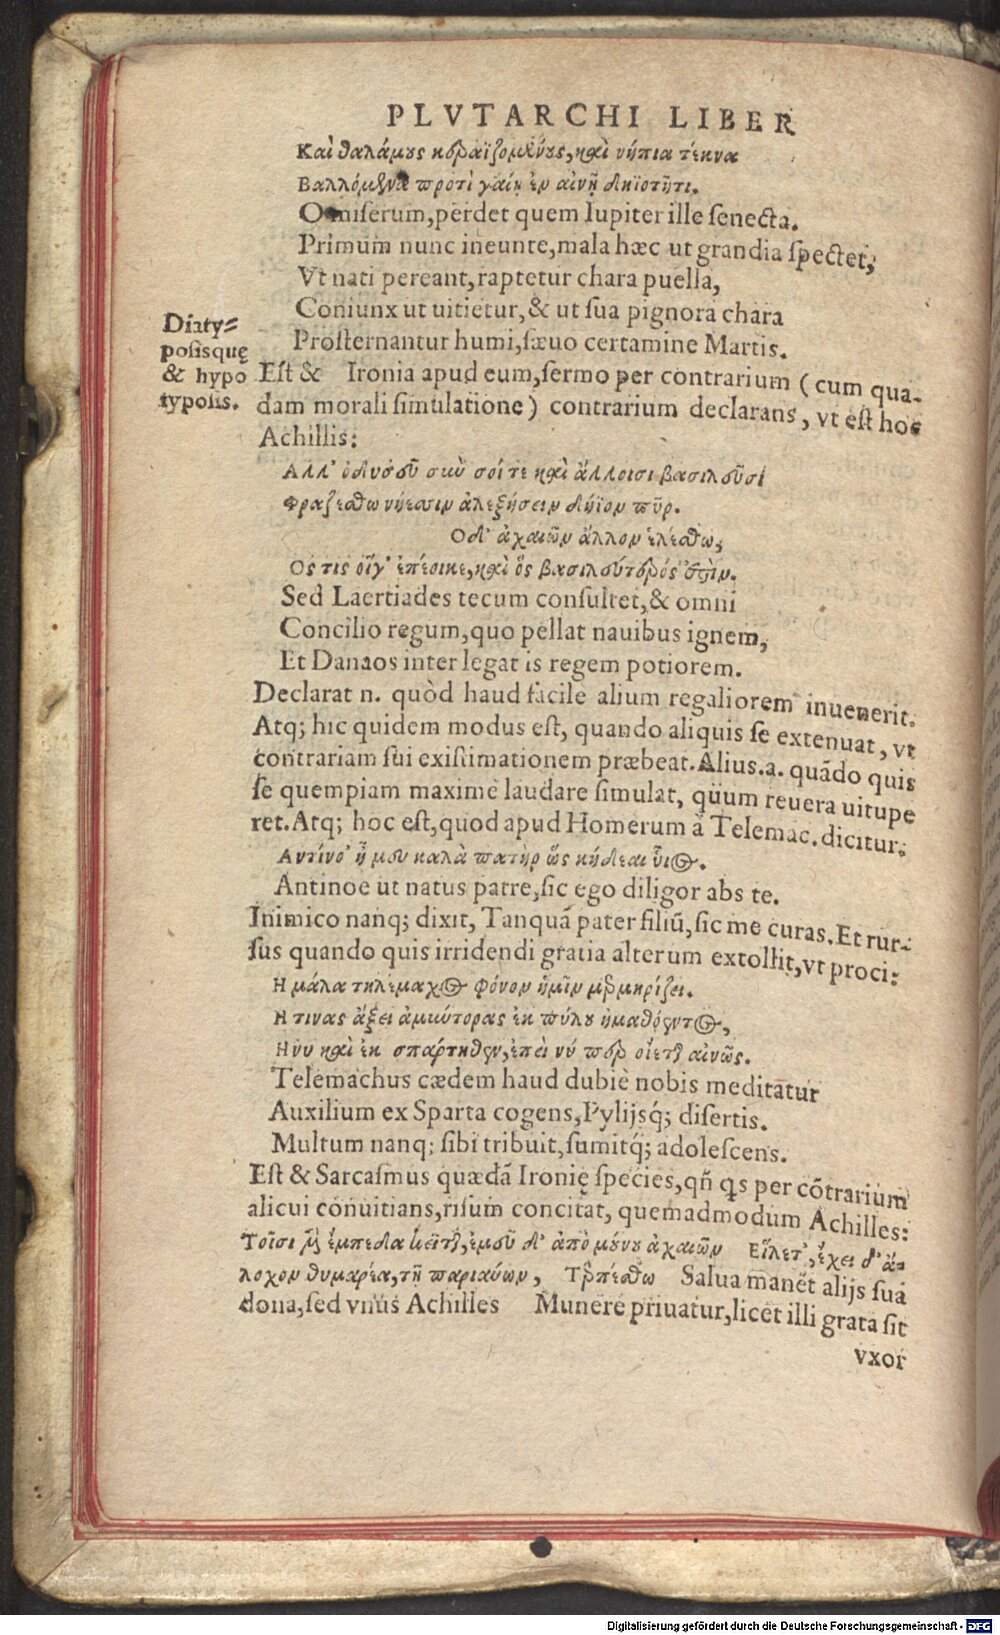 PLVTARCHI LIBER
Καὶ θαλάμους κεραϊζομένους, καὶ νήπια τέκνα
Βαλλόμενα προτὶ γαίῃ ἐν αἰνῇ δηϊοτῆτι.
O miserum, perdet quem Iupiter ille senecta.
Primum nunc ineunte, mala hæc ut grandia spectet,
Vt nati pereant, raptetur chara puella,
Coniunx ut uitietur, & ut sua pignora chara
Prosternantur humi, sæuo certamine Martis.
Diaty=
posisquę
& hypo
typosis.
Est & Ironia apud eum, sermo per contrarium (cum qua-
dam morali simulatione) contrarium declarans, vt est hoc
Achillis:
Αλλ' ὀδυσεῦ σιὺ σοί τε καὶ ἄλλοισι βασιλεῦσι
Φραζέσθω νήεσσιν ἀλεξήσειν δήϊον πῦρ.
Οδ' ἀχαιῶν ἄλλον ἑλέσθω,
Ος τις οἷγ' ἐπέοικε, καὶ ὃς βασιλεύτερός ἐστιν.
Sed Laertiades tecum consultet, & omni
Concilio regum, quo pellat nauibus ignem,
Et Danaos inter legat is regem potiorem.
Declarat n. quòd haud facile alium regaliorem inuenerit.
Atq; hic quidem modus est, quando aliquis se extenuat, vt
contrariam sui existimationem præbeat. Alius .a. quãdo quis
se quempiam maximè laudare simulat, quum reuera uitupe
ret. Atq; hoc est, quod apud Homerum à Telemac. dicitur.
Αντίνο' ἦ μευ καλὰ πατὴρ ὣς κήδεαι υἷος.
Antinoe ut natus patre, sic ego diligor abs te.
Inimico nanq; dixit, Tanquã pater filiũ, sic me curas. Et rur-
sus quando quis irridendi gratia alterum extollit, vt proci:
Η μάλα τηλεμαχος φόνον ἡμῖν μερμηρίζει.
Η τινας ἄξει ἀμιύτορας ἐκ πύλου ἠμαθόεντος,
Η νυ καὶ ἐκ σπάρτηθεν, ἐπεὶ νύ περ οἵεται αἰνῶς.
Telemachus cædem haud dubiè nobis meditatur
Auxilium ex Sparta cogens, Pylijsq́; disertis.
Multum nanq; sibi tribuit, sumitq́; adolescens.
Est & Sarcasmus quædã Ironię species, qñ qs per cõtrarium
alicui conuitians, risum concitat, quemadmodum Achilles:
Τοῖσι μὲν ἔμπεδα κεῖται, ἐμεῦ δ' ἀπὸ μούνου ἀχαιῶν Εἵλετ', ἔχει δ' ἄ-
λοχον θυμαρέα, τῇ παριαύων, Τερπέσθω Salua manẽt alijs sua
dona, sed vnus Achilles Munere priuatur, licet illi grata sit
vxor
Digitalisierung gefördert durch die Deutsche Forschungsgemeinschaft - DFG